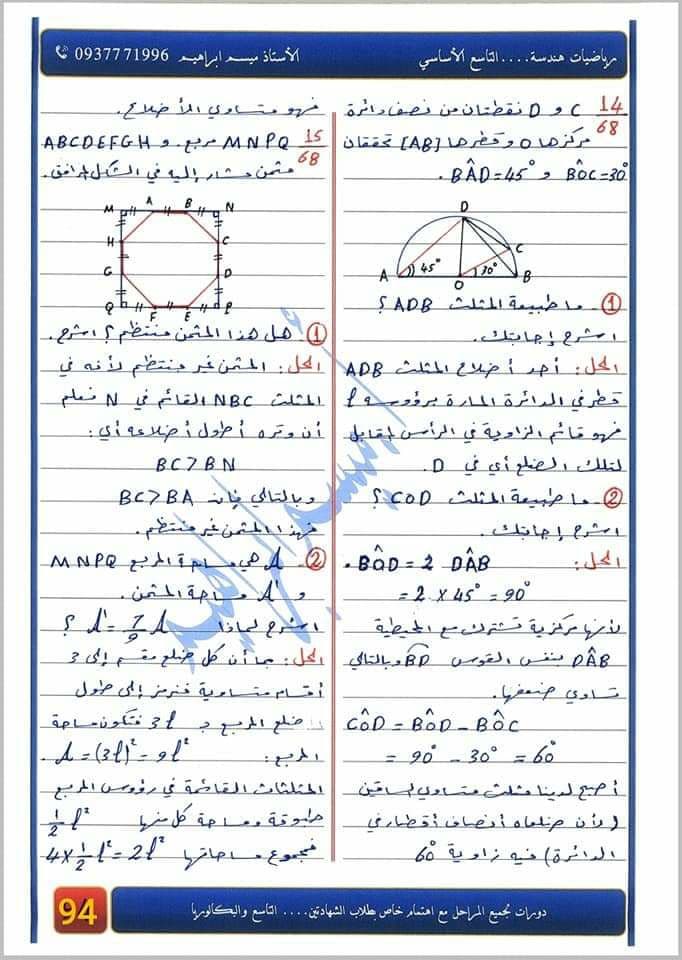 رياضيات هندسة.... التاسع الأساسي
الأستاذ ميسم ابراهيم 0937771996
14/68 C و D نقطتان من نصف دائرة
مركزها O وقطرها [AB] تحققان
BÔC=30° و BÂD=45°.
D
C
A 45° O 30° B
① ـ ما طبيعة المثلث ADB ؟
اشرح إجابتك.
الحل: أحد أضلاع المثلث ADB
قطر في الدائرة المارة برؤوسه
فهو قائم الزاوية في الرأس المقابل
لتلك الضلع أي في D.
② ـ ما طبيعة المثلث COD ؟
اشرح إجابتك.
الحل: BÔD = 2 DÂB
= 2 × 45° = 90°
لأنها مركزية تشترك مع المحيطية
DÂB بنفس القوس BD وبالتالي
تساوي ضعفها.
CÔD = BÔD - BÔC
= 90° - 30° = 60°
أصبح لدينا مثلث متساوي الساقين
(لأن ضلعاه أنصاف أقطار في
الدائرة) فيه زاوية 60°
فهو متساوي الأضلاع.
15/68 MNPQ مربع. و ABCDEFGH
مثمن مشار إليه في الشكل المرافق.
M A B N
H C
G D
Q F E P
① ـ هل هذا المثمن منتظم؟ اشرح.
الحل: المثمن غير منتظم لأنه في
المثلث NBC القائم في N نعلم
أن وتره أطول أضلاعه أي:
BC > BN
وبالتالي فإن BC > BA
فهذا المثمن غير منتظم.
② ـ A هي مساحة المربع MNPQ
و A' مساحة المثمن.
اشرح لماذا A' = 7/9 A ؟
الحل: بما أن كل ضلع مقسم إلى 3
أقسام متساوية فنرمز إلى طول
ضلع المربع بـ 3ℓ فتكون مساحة
المربع: A = (3ℓ)² = 9ℓ²
المثلثات القائمة في رؤوس المربع
طبوقة ومساحة كل منها 1/2 ℓ²
فمجموع مساحاتها 4 × 1/2 ℓ² = 2ℓ²
دورات لجميع المراحل مع اهتمام خاص بطلاب الشهادتين.... التاسع والبكالوريا
94